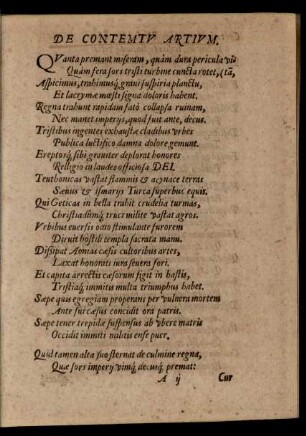 DE CONTEMTV ARTIVM.
QVanta premant miseram, quàm dura pericula vi-
Quàm fera sors tristi turbine cuncta rotet, (tã,
Aspicimus, trahimusq́; graui suspiria planctu,
Et lacrymæ mæsti signa doloris habent.
Regna trahunt rapidam fato collapsa ruinam,
Nec manet imperijs, quod fuit ante, decus.
Tristibus ingentes exhaustæ cladibus vrbes
Publica luctifico damna dolore gemunt.
Ereptosq́; sibi grauiter deplorat honores
Relligio in laudes officiosa DEI.
Teuthonicas vastat flammis & acinace terras
Sæuus & Ismarijs Turca superbus equis.
Qui Geticas in bella trahit crudelia turmas,
Christiadumq́; truci milite vastat agros.
Vrbibus euersis odio stimulante furorem
Diruit hostili templa sacrata manu.
Dissipat Aonias cæsis cultoribus artes,
Laxat honorati iura seuera fori.
Et capita arrectis cæsorum figit in hastis,
Tristiaq́; immitis multa triumphus habet.
Sæpe quis egregiam properans per vulnera mortem
Ante sui cæsus concidit ora patris.
Sæpe tener trepidæ suspensus ab vbere matris
Occidit immiti nilitans ense puer.
Quid tamen alta suo sternat de culmine regna,
Quæ sors imperij vimq́; decusq́; premat:
A ij
Cur